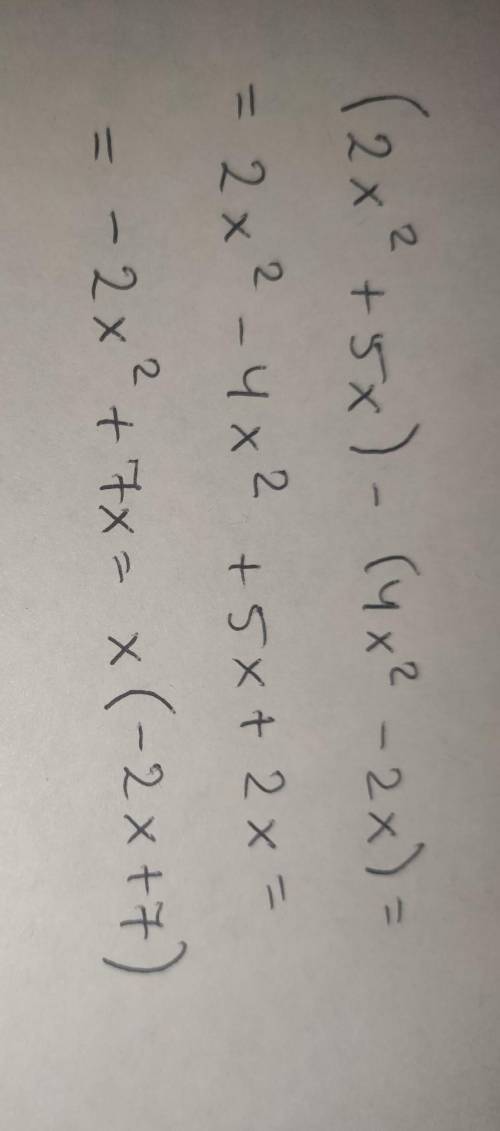 (2x² + 5x) - (4x² - 2x) =
= 2x² - 4x² + 5x + 2x =
= - 2x² + 7x = x(-2x+7)